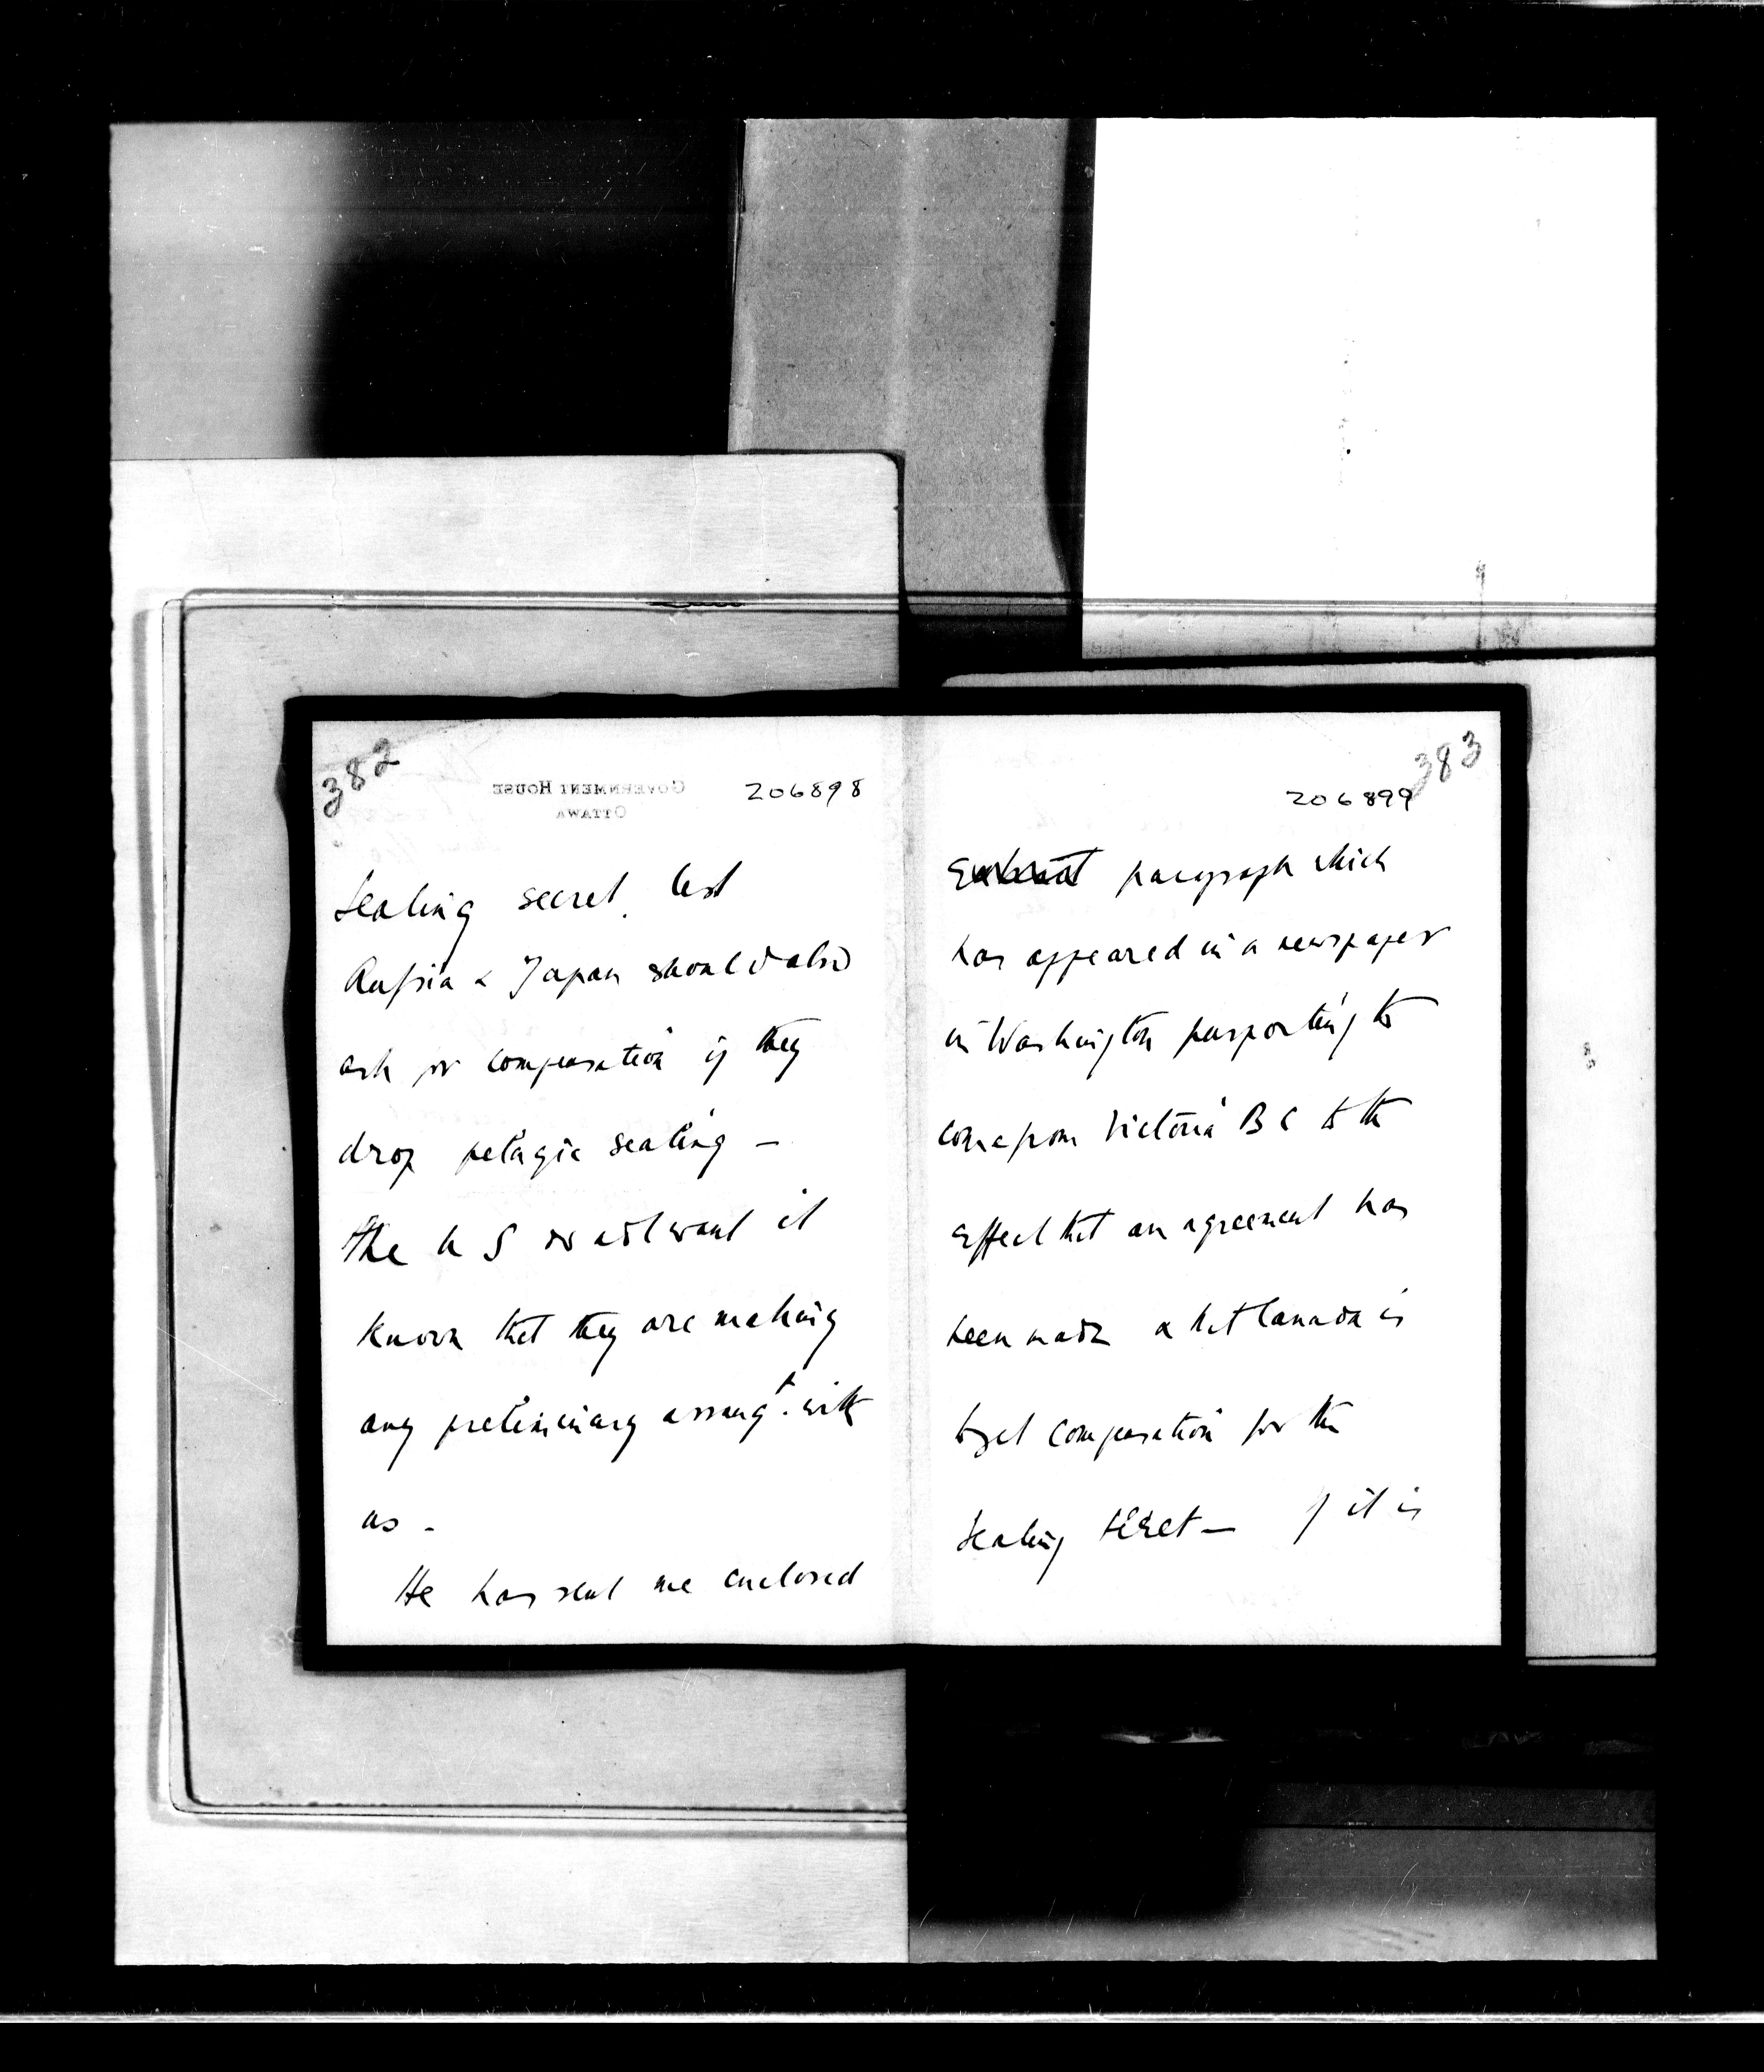 382
GOVERNMENT HOUSE
OTTAWA
206898
Sealing secret, lest
Russia & Japan should also
ask for compensation if they
drop pelagic sealing —
The U S do not want it
known that they are making
any preliminary arrangt. with
us -
He has sent me enclosed
383
206899
paragraph which
has appeared in a newspaper
in Washington purporting to
come from Victoria B C to the
effect that an agreement has
been made & that Canada is
to get compensation for the
Sealing fleet — If it is